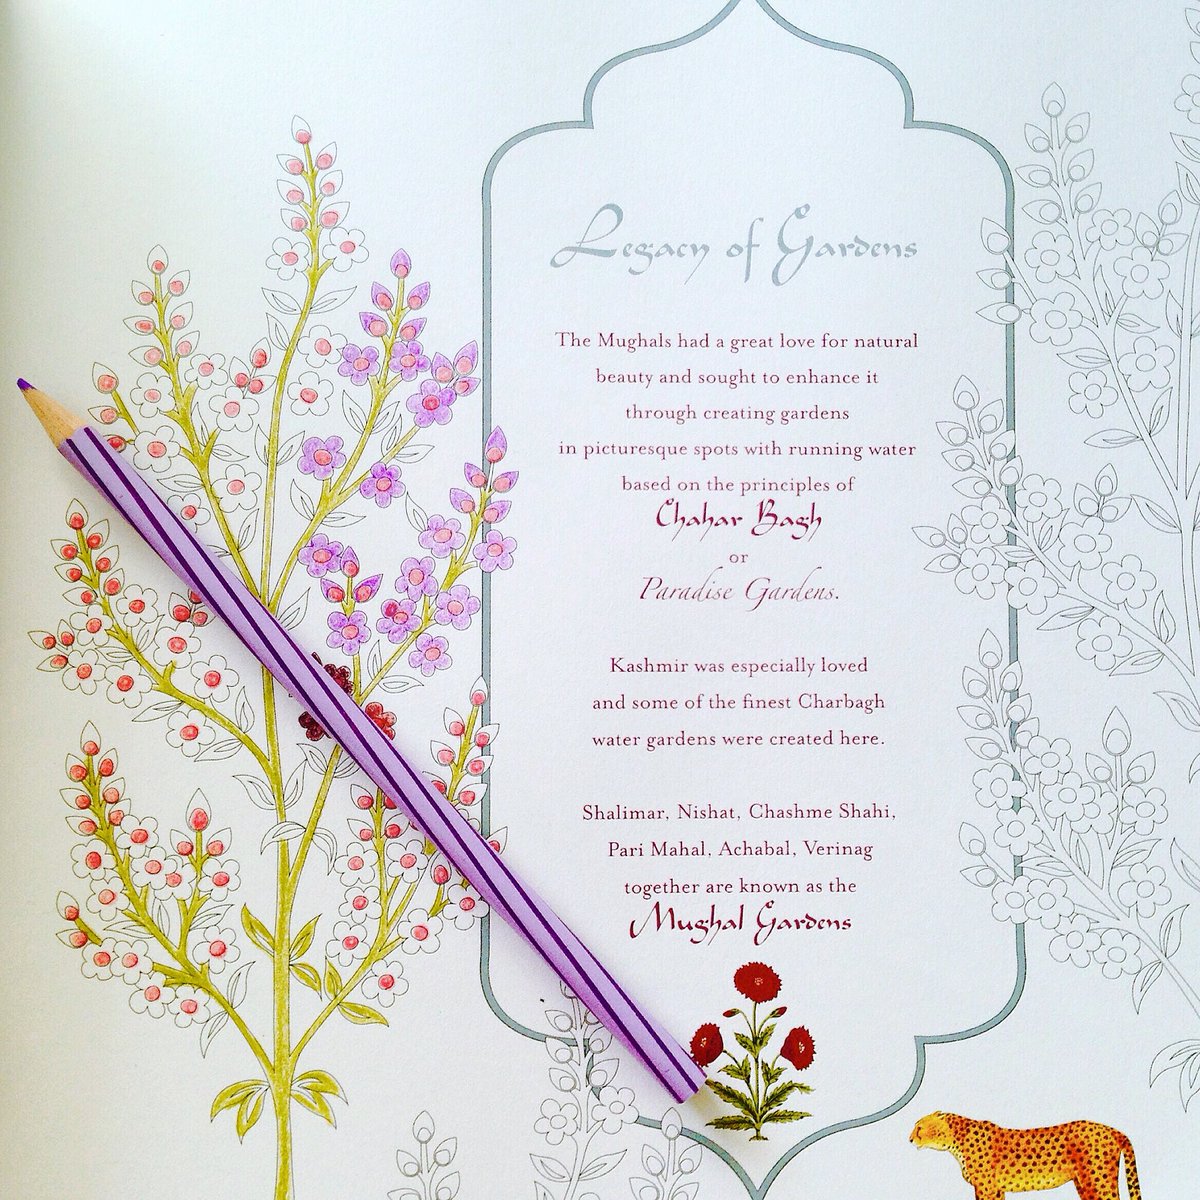 Legacy of Gardens
The Mughals had a great love for natural
beauty and sought to enhance it
through creating gardens
in picturesque spots with running water
based on the principles of
Chahar Bagh
or
Paradise Gardens.
Kashmir was especially loved
and some of the finest Charbagh
water gardens were created here.
Shalimar, Nishat, Chashme Shahi,
Pari Mahal, Achabal, Verinag
together are known as the
Mughal Gardens